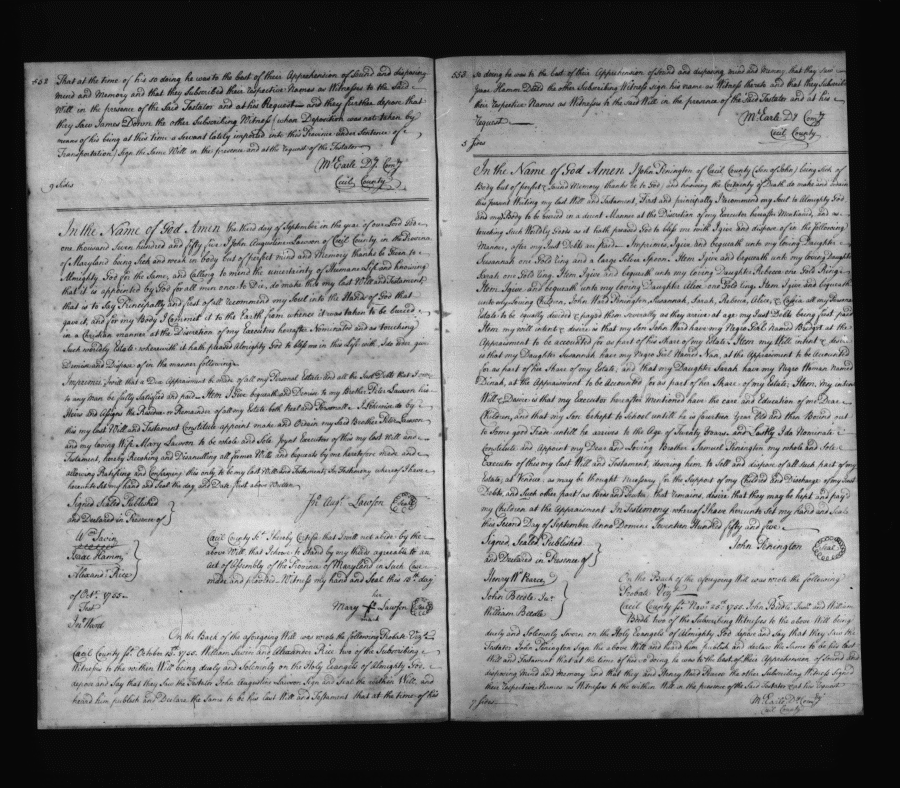 552
That at the time of his so doing he was to the best of their Apprehension of Sound and disposing
mind and Memory and that they Subscribed their respective Names as Witnesses to the Said
Will in the presence of the Said Testator and at his Request — and they further depose that
they Saw James Down the other Subscribing Witness (whose Deposition was not taken by
means of his being at this time a Servant lately imported into this Province under Sentence of
Transportation) Sign the Same Will in the presence and at the request of the Testator
Ms Earle Dy Comy
Cecil County
9 Sides
In the Name of God Amen the third day of September in the year of our Lord God
one thousand Seven hundred and fifty five I John Augustine Lawson of Cecil County in the Province
of Maryland being Sick and weak in body but of perfect mind and Memory thanks be Given to
Almighty God for the Same, and calling to mind the uncertainty of Humane Life and knowing
that it is appointed by God for all men once to Die, do make this my last Will and Testament
that is to Say Principally and first of all I recommend my Soul into the Hands of God that
gave it, and for my Body I Commit it to the Earth from whence it was taken to be buried
in a Christian manner at the Discretion of my Executors hereafter Nominated and as touching
Such worldly Estate wherewith it hath pleased Almighty God to bless me in this Life with, I do Give
Demise and Dispose of in the manner following
Imprimis I will that a Due Appraisment be made of all my Personal Estate and all the Just Debts that I owe
to any man be fully Satisfied and paid — Item I Give bequeath and Demise to my Brother Peter Lawson his
Heirs and Assigns the Residue or Remainder of all my Estate both Real and Personall. I likewise do by
this my last Will and Testament Constitute appoint make and Ordain my Said Brother Peter Lawson
and my loving Wife Mary Lawson to be whole and Sole Joynt Executors of this my last Will and
Testament, hereby Revoking and Disanulling all former Wills and bequests by me heretofore made and
allowing Ratifying and Confirming this only to be my last Will and Testament, In Testimony whereof I have
hereunto Set my hand and Seal the day and Date first above Written
Signed Sealed Published
and Declared in Presence of
Jno Augn Lawson Seal
Wm Savin
Isaac Hamm
Alexandr Rice
Cecil County Sc I hereby Certifie that I will not abide by the
above Will, that I choose to Stand by my thirds agreeable to an
Act of Assembly of the Province of Maryland in Such Case
made and provided — Witness my hand and Seal this 15th day
of Octr 1755
Test
Jno Ward
her
Mary Lawson Seal
mark
On the Back of the aforegoing Will was wrote the following Probate Vizt
Cecil County Sc October 15th 1755 William Savin and Alexander Rice two of the Subscribing
Witnesses to the within Will being duely and Solemnly on the Holy Evangels of Almighty God
depose and Say that they Saw the Testator John Augustine Lawson Sign and Seal the within Will, and
heard him publish and Declare the Same to be his last Will and Testament that at the time of his
553
so doing he was to the best of their Apprehension of Sound and disposing mind and Memory, that they Saw
Isaac Hamm the other Subscribing Witness Sign his name as Witness thereto and that they Subscribed
their respective Names as Witnesses to the Said Will in the presence of the Said Testator and at his
request
Ms Earle Dy Comy
Cecil County
5 Sides
In the Name of God Amen I John Penington of Cecil County (Son of John) being Sick of
Body but of perfect & Sound Memory thanks be to God, and knowing the Certainty of Death do make and ordain
this present Writing my last Will and Testament, First and principally I recommend my Soul to Almighty God
and my Body to be buried in a decent Manner at the Discretion of my Executor hereafter Mentioned, and as
touching Such Worldly Goods as it hath pleased God to bless me with I give and dispose of in the following
Manner, after my Just Debts are paid — Imprimis, I give and bequeath unto my loving Daughter
Susannah one Gold Ring and a large Silver Spoon. Item I give and bequeath unto my loving Daughter
Sarah one Gold Ring. Item I give and bequeath unto my loving Daughter Rebecca one Gold Ring
Item I give and bequeath unto my loving Daughter Alice, one Gold Ring, Item I give and bequeath
unto my loving Children, John Ward Penington, Susannah, Sarah, Rebecca, Alice, & all my Personal
Estate to be equally divided & payed them severally as they arrive at age my Just Debts being first paid
Item my will intent & desire is that my Son John Ward have my Negro Girl Named Bridget at the
Appraisment to be accounted for as part of his Share of my Estate, Item my Will, intent & desire
is that my Daughter Susannah have my Negro Girl Named Nan, at the Appraisment to be accounted
for as part of her Share of my Estate, and that my Daughter Sarah have my Negro Woman Named
Dinah, at the Appraisment to be Accounted for as part of her Share of my Estate, Item, my intent
Will & Desire is that my Executor hereafter Mentioned have the care and Education of my Dear
Children, and that my Son be kept to School untill he is fourteen Years Old and then Bound out
to Some good Trade untill he arrives to the Age of Twenty Oneyears, and Lastly I do Nominate
Constitute and Appoint my Dear and Loving Brother Samuel Penington my whole and Sole
Executor of this my last Will and Testament, desiring him to Sell and dispose of all such part of my
Estate, at Vendue, as may be thought necessary for the Support of my Children and Discharge of my Just
Debts, and Such other part as Beds and that remains, desire that they may be kept and payd
my Children at the Appraisment In Testimony whereof I have hereunto set my hand and Seale
this Second Day of September Anno Domini Seventeen Hundred fifty and five
Signed Sealed Published
and Declared in Presence of
John Penington Seal
Henry Wd Pearce
John Beedle Junr
William Beedle
On the Back of the aforegoing Will was wrote the following
Probate Vizt
Cecil County Sc Novr 25th 1755 John Beedle Junr and William
Beedle two of the Subscribing Witnesses to the above Will being
duely and Solemnly Sworn on the Holy Evangels of Almighty God depose and Say that they Saw the
Testator John Penington Sign the above Will and heard him publish and declare the Same to be his last
Will and Testament that at the time of his so doing he was to the best of their Apprehension of Sound and
disposing mind and Memory and that they Saw Henry Ward Pearce the other Subscribing Witness Signed
their respective Names as Witnesses to the within Will in the presence of the Said Testator & at his request
Ms Earle Dy Comy
Cecil County
7 Sides